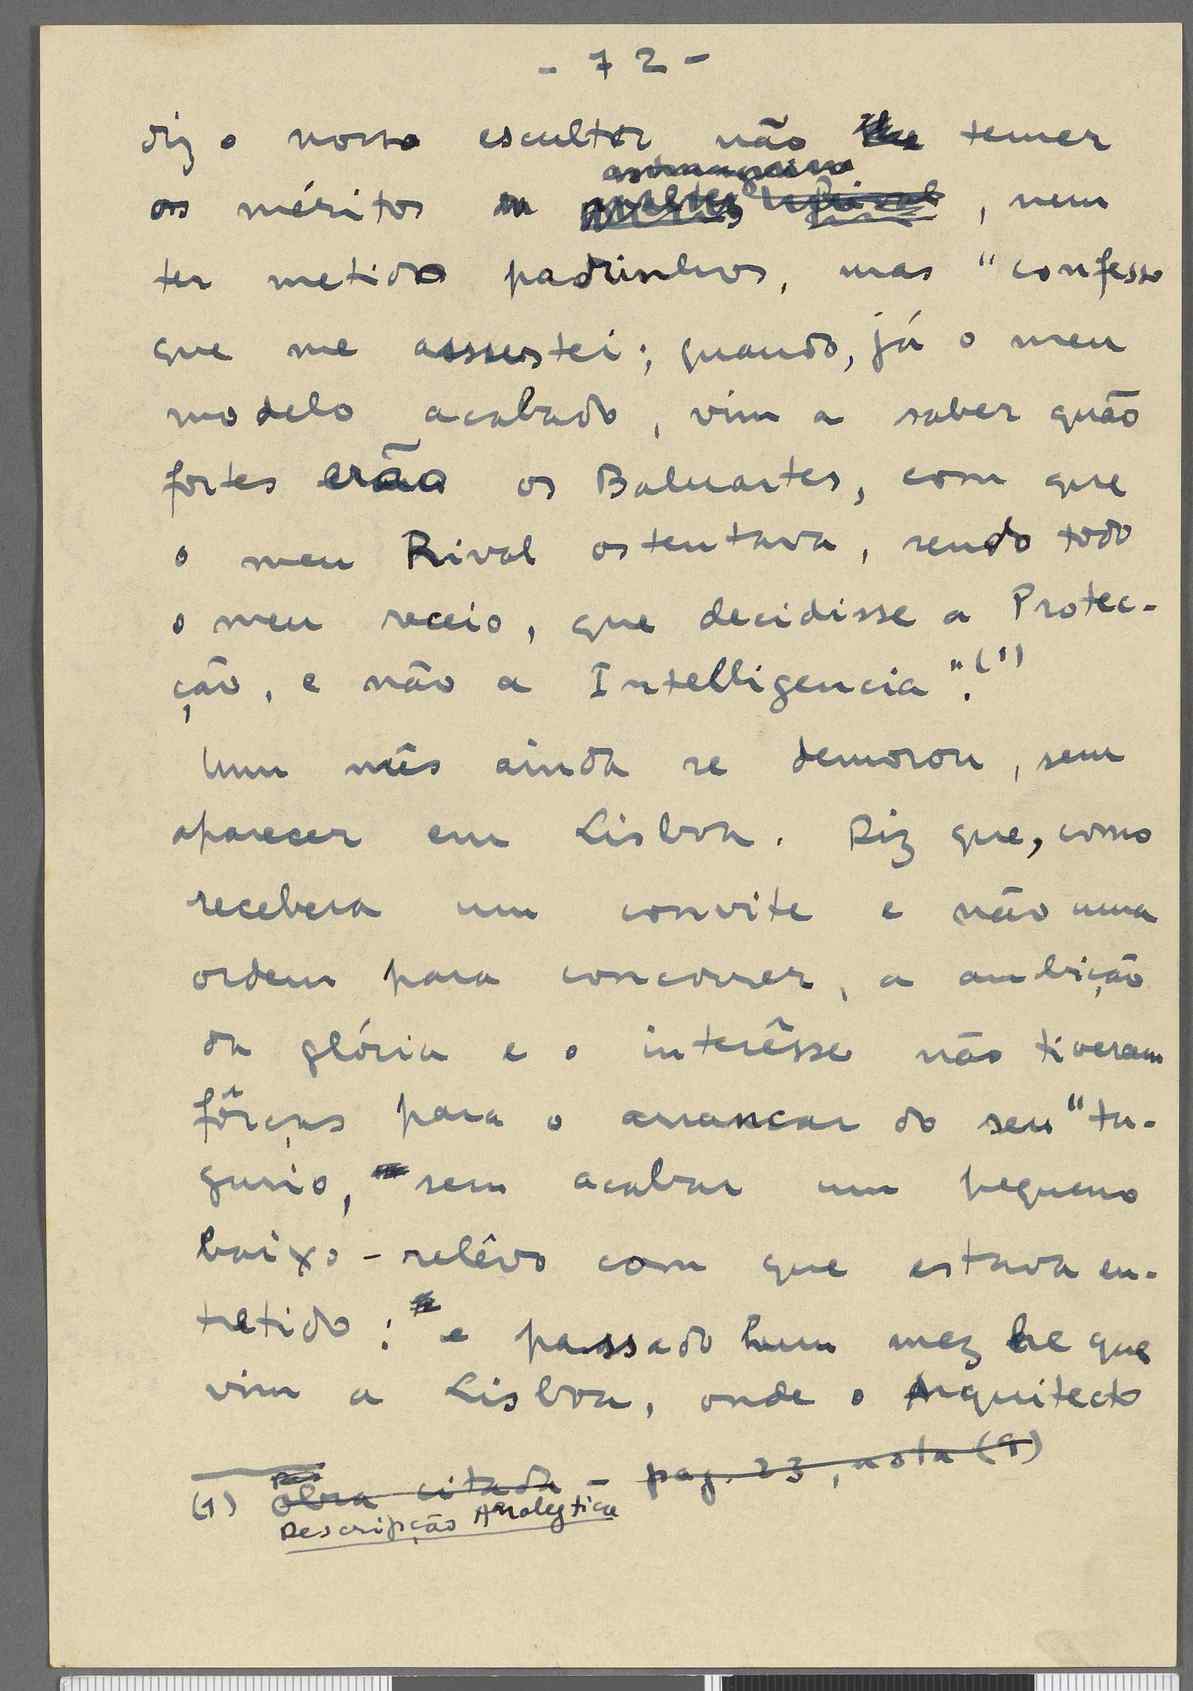 - 72 -
diz o nosso escultor não temer
os méritos, nem
ter metido padrinhos, mas "confesso
que me asssustei; quando, já o meu
modelo acabado, vim a saber quão
fortes erão os Baluartes, com que
o meu Rival ostentava, sendo todo
o meu receio, que decidisse a Protec-
ção, e não a Intelligencia". (1)
Um mês ainda se demorou, sem
aparecer em Lisboa. Diz que, como
recebera um convite e não uma
ordem para concorrer, a ambição
da glória e o interêsse não tiveram
fôrças para o arrancar do seu "tu-
gurio, sem acabar um pequeno
baixo-relêvo com que estava en-
tretido: e passado hum mez he que
vim a Lisboa, onde o Arquitecto
(1) obra citada - pag. 23, nota (9)
Descripção Analytica